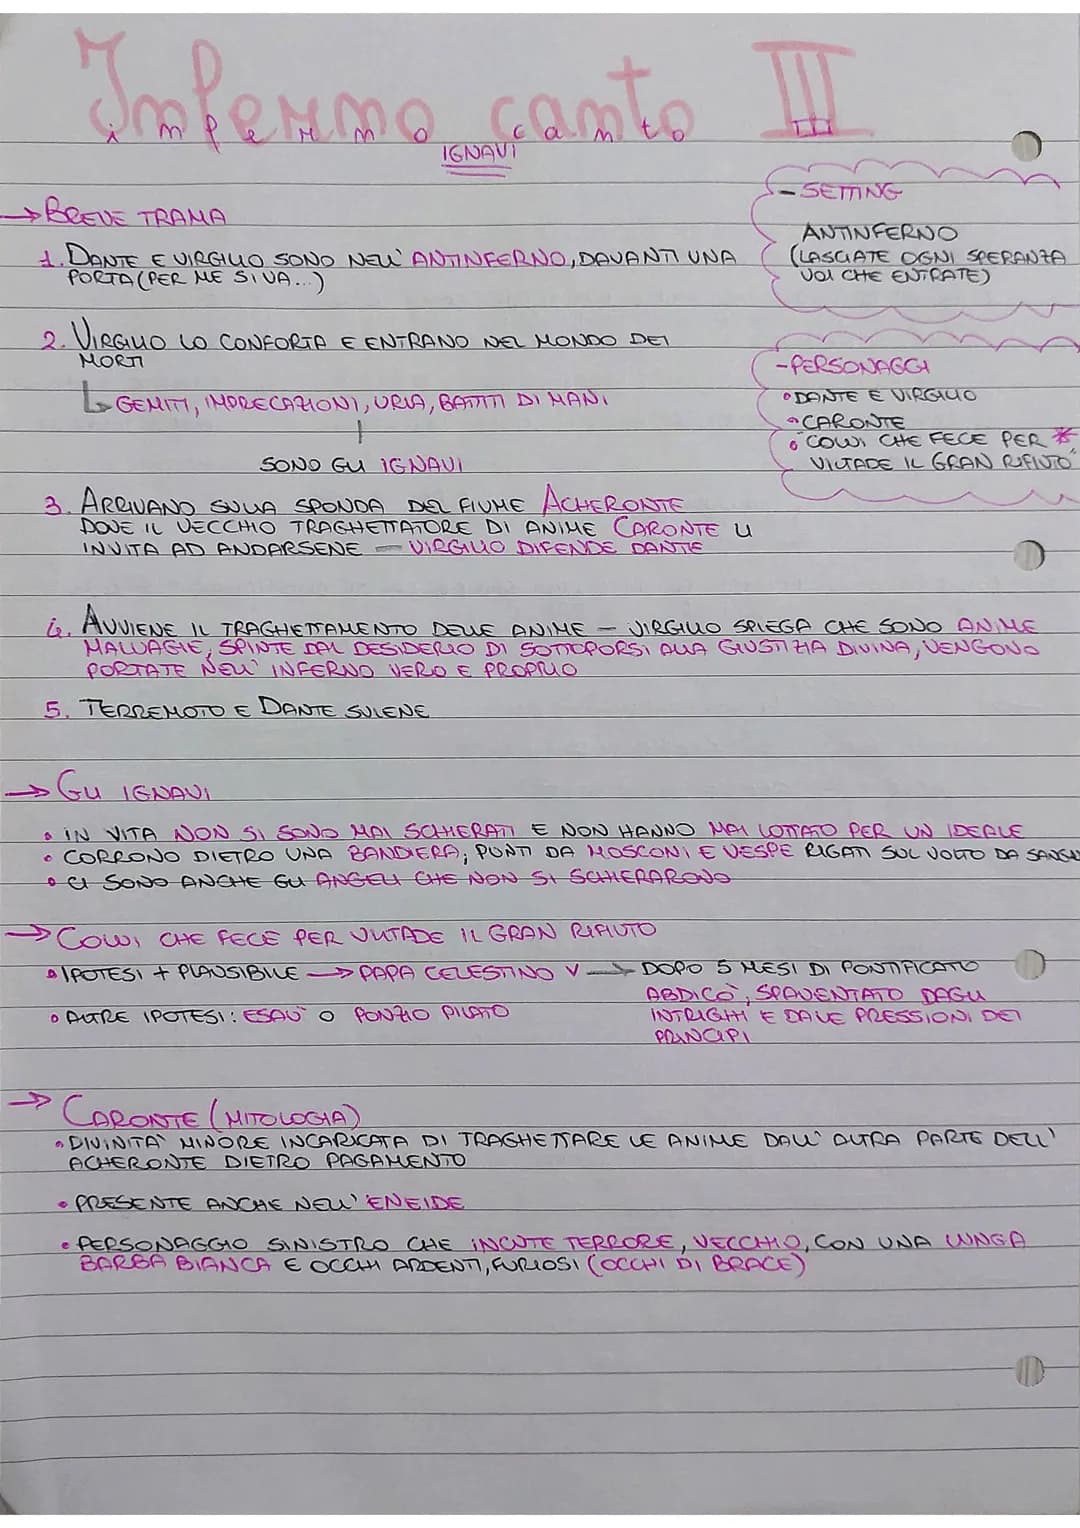 Inferno canto III
inferno canto III
IGNAVI
→ BREVE TRAMA
1. DANTE E VIRGILIO SONO NELL' ANTINFERNO, DAVANTI UNA
PORTA (PER ME SI VA...)
2. VIRGILIO LO CONFORTA E ENTRANO NEL MONDO DEI
MORTI
↳ GEMITI, IMPRECAZIONI, URLA, BATTITI DI MANI
|
SONO GLI IGNAVI
- SETTING
ANTINFERNO
(LASCIATE OGNI SPERANZA
VOI CHE ENTRATE)
- PERSONAGGI
• DANTE E VIRGILIO
• CARONTE
• "COLUI CHE FECE PER *
VILTADE IL GRAN RIFIUTO"
3. ARRIVANO SULLA SPONDA DEL FIUME ACHERONTE
DOVE IL VECCHIO TRAGHETTATORE DI ANIME CARONTE LI
INVITA AD ANDARSENE — VIRGILIO DIFENDE DANTE
4. AVVIENE IL TRAGHETTAMENTO DELLE ANIME - VIRGILIO SPIEGA CHE SONO ANIME
MALVAGIE, SPINTE DAL DESIDERIO DI SOTTOPORSI ALLA GIUSTIZIA DIVINA, VENGONO
PORTATE NELL' INFERNO VERO E PROPRIO
5. TERREMOTO E DANTE SVIENE
→ GLI IGNAVI
• IN VITA NON SI SONO MAI SCHIERATI E NON HANNO MAI LOTTATO PER UN IDEALE
• CORRONO DIETRO UNA BANDIERA, PUNTI DA MOSCONI E VESPE RIGATI SUL VOLTO DA SANGU
• CI SONO ANCHE GLI ANGELI CHE NON SI SCHIERARONO
→ COLUI CHE FECE PER VILTADE IL GRAN RIFIUTO
• IPOTESI + PLAUSIBILE → PAPA CELESTINO V → DOPO 5 MESI DI PONTIFICATO
ABDICÒ, SPAVENTATO DAGLI
INTRIGHI E DALLE PRESSIONI DEI
PRINCIPI
• ALTRE IPOTESI: ESAÙ O PONZIO PILATO
→ CARONTE (MITOLOGIA)
• DIVINITA' MINORE INCARICATA DI TRAGHETTARE LE ANIME DALL' ALTRA PARTE DELL'
ACHERONTE DIETRO PAGAMENTO
• PRESENTE ANCHE NELL' ENEIDE
• PERSONAGGIO SINISTRO CHE INCUTE TERRORE, VECCHIO, CON UNA LUNGA
BARBA BIANCA E OCCHI ARDENTI, FURIOSI (OCCHI DI BRACE)